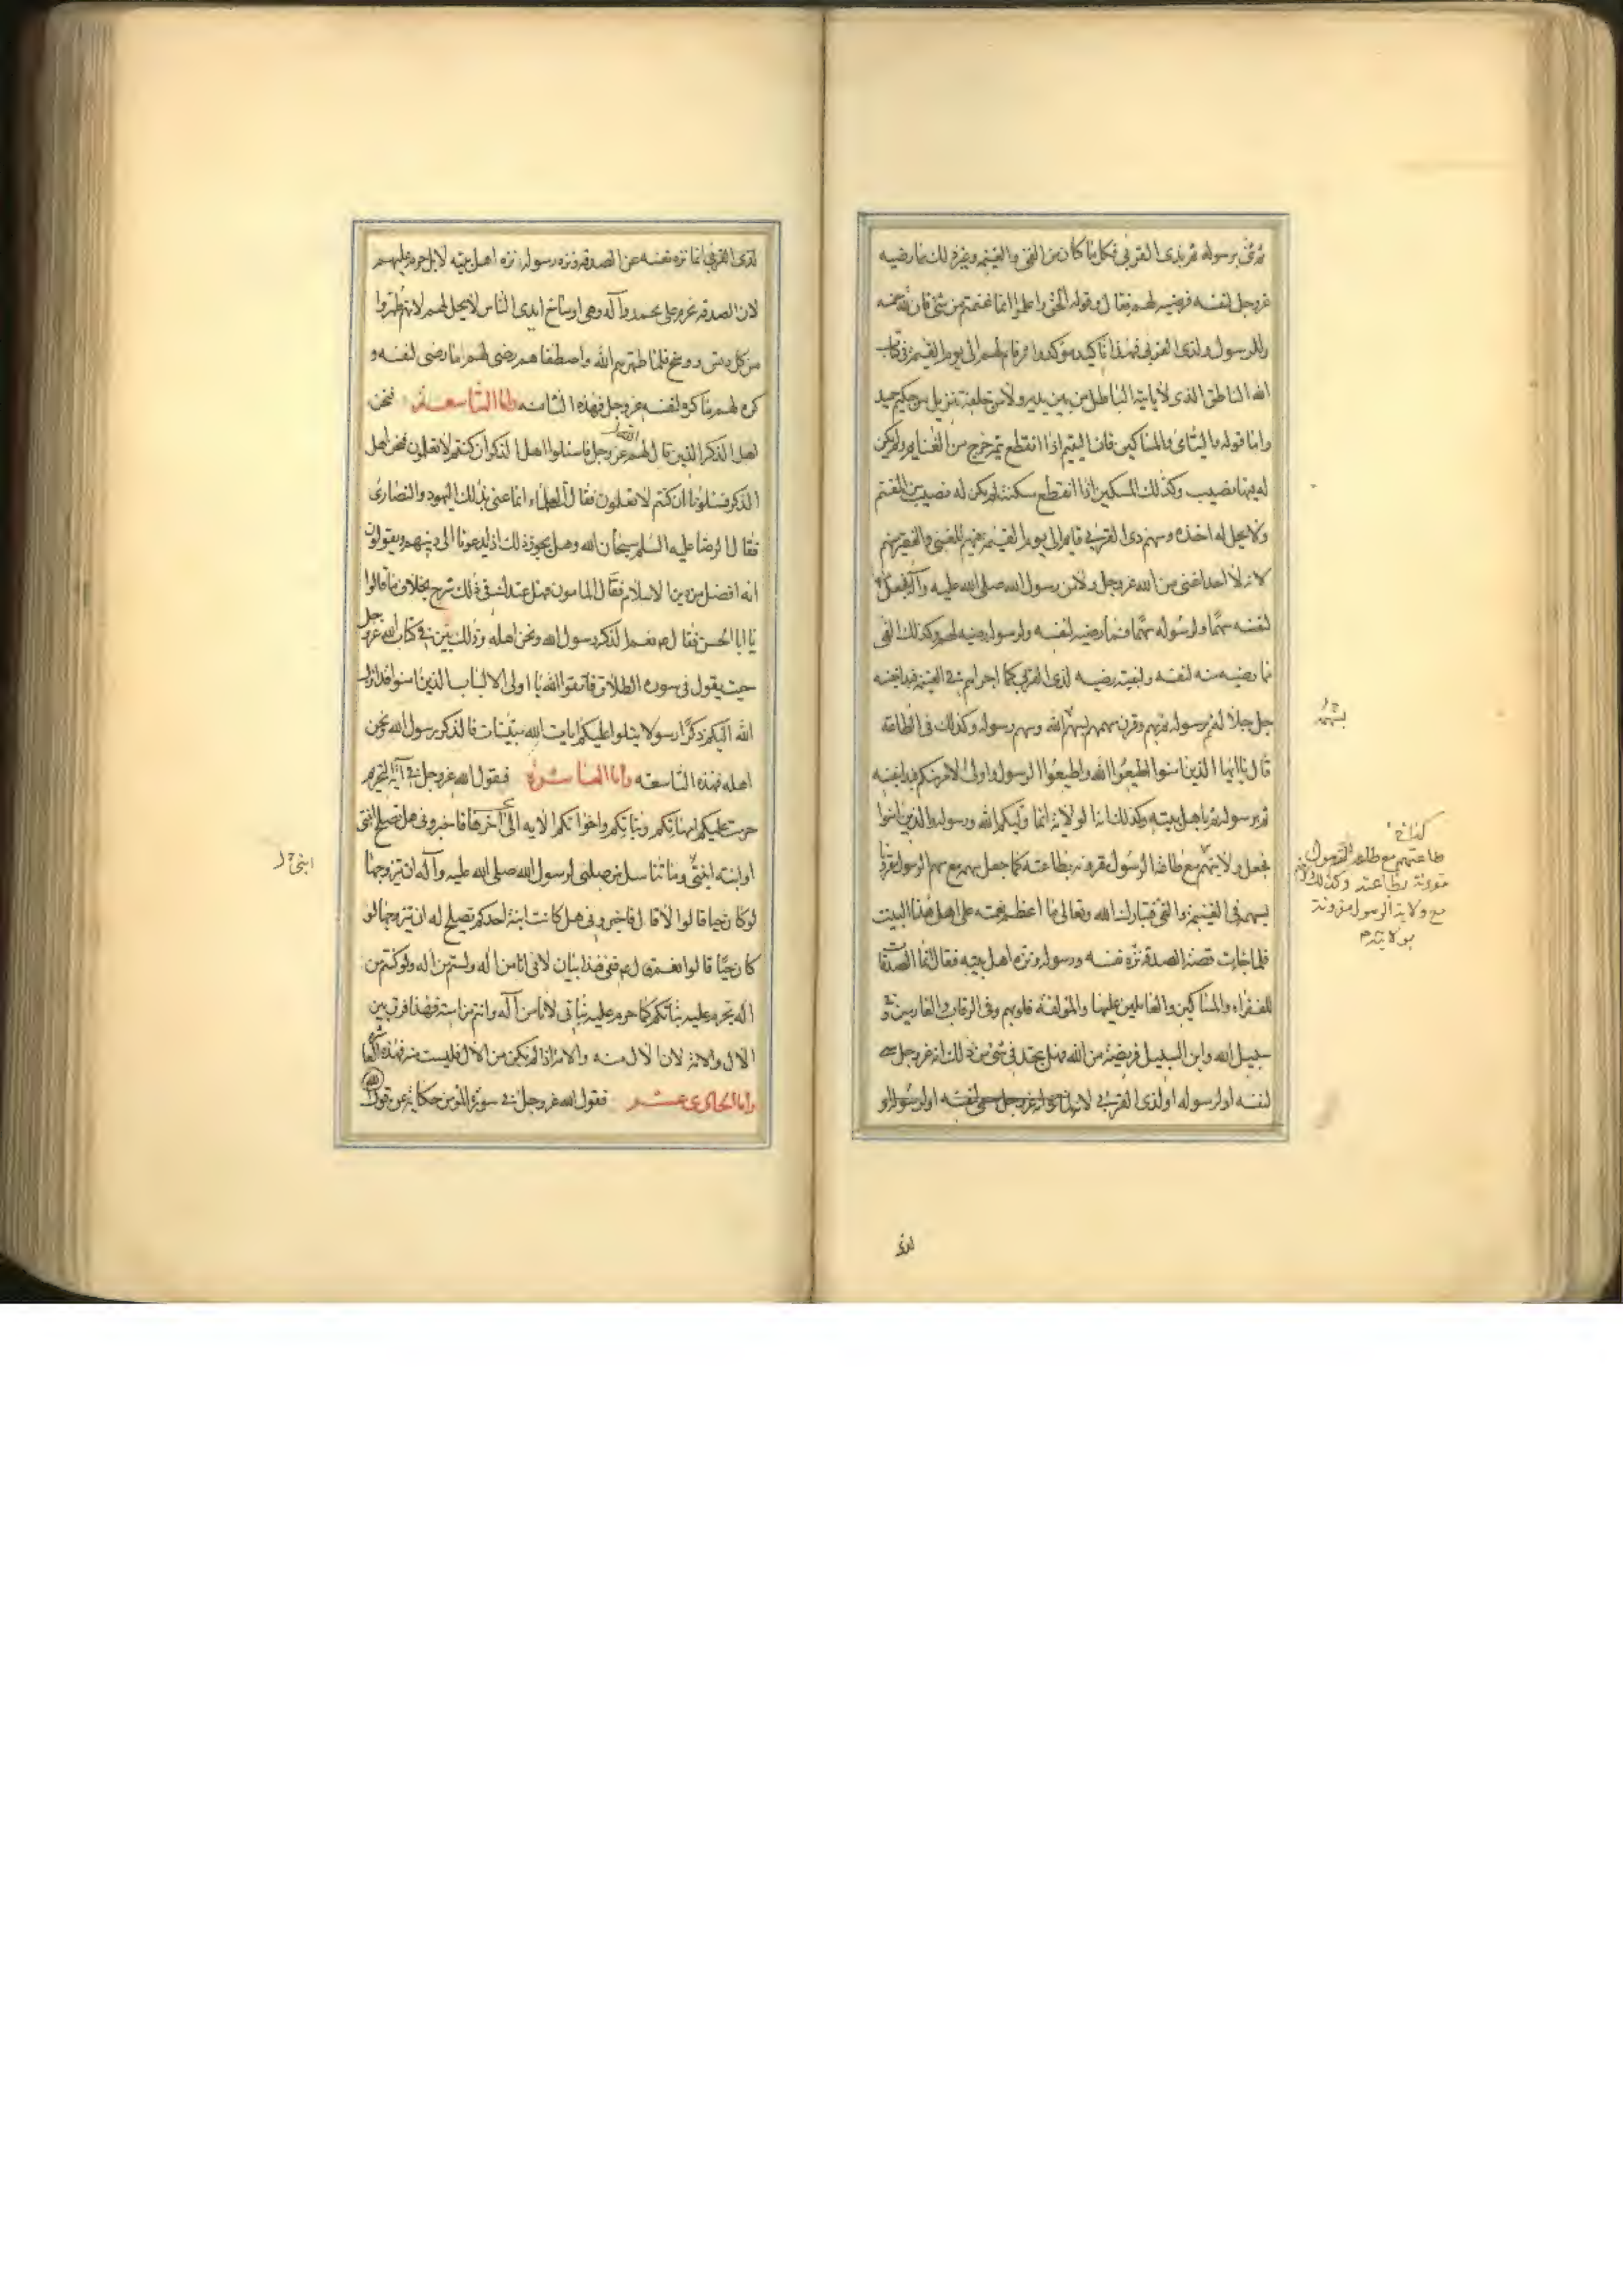 ثم ثنى برسوله ثم بذى القربى فكل ما كان من الفئ والغنيمة وغير ذلك مما رضيه
عز وجل لنفسه فرضيه لهم فقال وقوله الحق واعلموا انما غنمتم من شئ فان لله خمسه
وللرسول ولذى القربى فهذا تاكيد مؤكد وامر قائم لهم الى يوم القيمة فى كتاب
الله الناطق الذى لا ياتيه الباطل من بين يديه ولا من خلفه تنزيل من حكيم حميد
واما قوله واليتامى والمساكين فان اليتيم اذا انقطع يتمه خرج من الغنايم ولم يكن
له فيها نصيب وكذلك المسكين اذا انقطع مسكنته لم يكن له نصيب من المغنم
ولا يحل له اخذه وسهم ذى القربى قايم الى يوم القيمة فيهم للغنى والفقير منهم
لانه لا احد اغنى من الله عز وجل ولا من رسول الله صلى الله عليه وآله فجعل
لنفسه سهما ولرسوله سهما فما رضيه لنفسه ولرسوله رضيه لهم وكذلك الفئ
ما رضيه منه لنفسه ولنبيه رضيه لذى القربى كما اجراهم فى الغنيمة فبدا بنفسه
جل جلاله ثم برسوله ثم بهم وقرن سهمهم بسهم الله وسهم رسوله وكذلك فى الطاعة
قال يا ايها الذين امنوا اطيعوا الله واطيعوا الرسول واولى الامر منكم فبدا بنفسه
ثم برسوله ثم باهل بيته وكذلك اية الولاية انما وليكم الله ورسوله والذين امنوا
فجعل ولايتهم مع طاعة الرسول مقرونة بطاعته كما جعل سهمه مع سهم الرسول مقرونا
بسهمه فى الغنيمة والفئ فتبارك الله وتعالى ما اعظم نعمته على اهل هذا البيت
فلما جاءت قصة الصدقة نزه نفسه ورسوله ونزه اهل بيته فقال انما الصدقات
للفقراء والمساكين والعاملين عليها والمؤلفة قلوبهم وفى الرقاب والغارمين وفى
سبيل الله وابن السبيل فريضة من الله فهل تجد فى شئ من ذلك انه عز وجل سمى
لنفسه او لرسوله او لذى القربى لانه
بسهمه
كذا خ
طاعتهم مع طاعة الرسول
مقرونة بطاعته وكذلك
مع ولاية الرسول مقرونة
بولايتهم
لذى
لذى القربى انما نزه نفسه عن الصدقة ونزه رسوله نزه اهل بيته لا بل حرم عليهم
لان الصدقة محرمة على محمد وآله وهى اوساخ ايدى الناس لا يحل لهم لانهم طهروا
من كل دنس ووسخ فلما طهرهم الله واصطفاهم رضى لهم ما رضى لنفسه و
كره لهم ما كره لنفسه عز وجل فهذه الثامنة واما التاسعة فنحن
اهل الذكر الذين قال الله عز وجل فاسئلوا اهل الذكر ان كنتم لا تعلمون فنحن اهل
الذكر فسئلونا ان كنتم لا تعلمون فقال العلماء انما عنى بذلك اليهود والنصارى
فقال الرضا عليه السلم سبحان الله وهل يجوز ذلك اذا يدعونا الى دينهم ويقولون
انه افضل من دين الاسلام فقال المامون فهل عندك فى ذلك شرح بخلاف ما قالوا
يا ابا الحسن فقال نعم الذكر رسول الله ونحن اهله وذلك بين فى كتاب الله عز وجل
حيث يقول فى سورة الطلاق فاتقوا الله يا اولى الالباب الذين امنوا قد انزل
الله اليكم ذكرا رسولا يتلوا عليكم ايات الله مبينات فالذكر رسول الله ونحن
اهله فهذه التاسعة واما العاشرة فيقول الله عز وجل فى آية التحريم
حرمت عليكم امهاتكم وبناتكم واخواتكم الاية الى آخرها فاخبرونى هل تصلح ابنتى
او ابنة ابنتى وما تناسل من صلبى لرسول الله صلى الله عليه وآله ان يتزوجها
لو كان حيا قالوا لا قال فاخبرونى هل كانت ابنة احدكم تصلح له ان يتزوجها لو
كان حيا قالوا نعم قال ففى هذا بيان لانى انا من آله ولستم من آله ولو كنتم من
آله لحرم عليه بناتكم كما حرم عليه بناتى لانا من آله وانتم من امته فهذا فرق بين
الآل والامة لان الآل منه والامة اذا لم تكن من الآل فليست منه فهذه العاشرة
واما الحادى عشر فقول الله عز وجل فى سورة المؤمن حكاية عن قول
ابنى